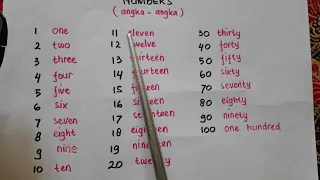 NUMBERS
( angka - angka )
1 one
2 two
3 three
4 four
5 five
6 six
7 seven
8 eight
9 nine
10 ten
11 eleven
12 twelve
13
14
15
16
17
18 eighteen
19 nineteen
20 twenty
30 thirty
40 forty
50 fifty
60 sixty
70 seventy
80 eighty
90 ninety
100 one hundred